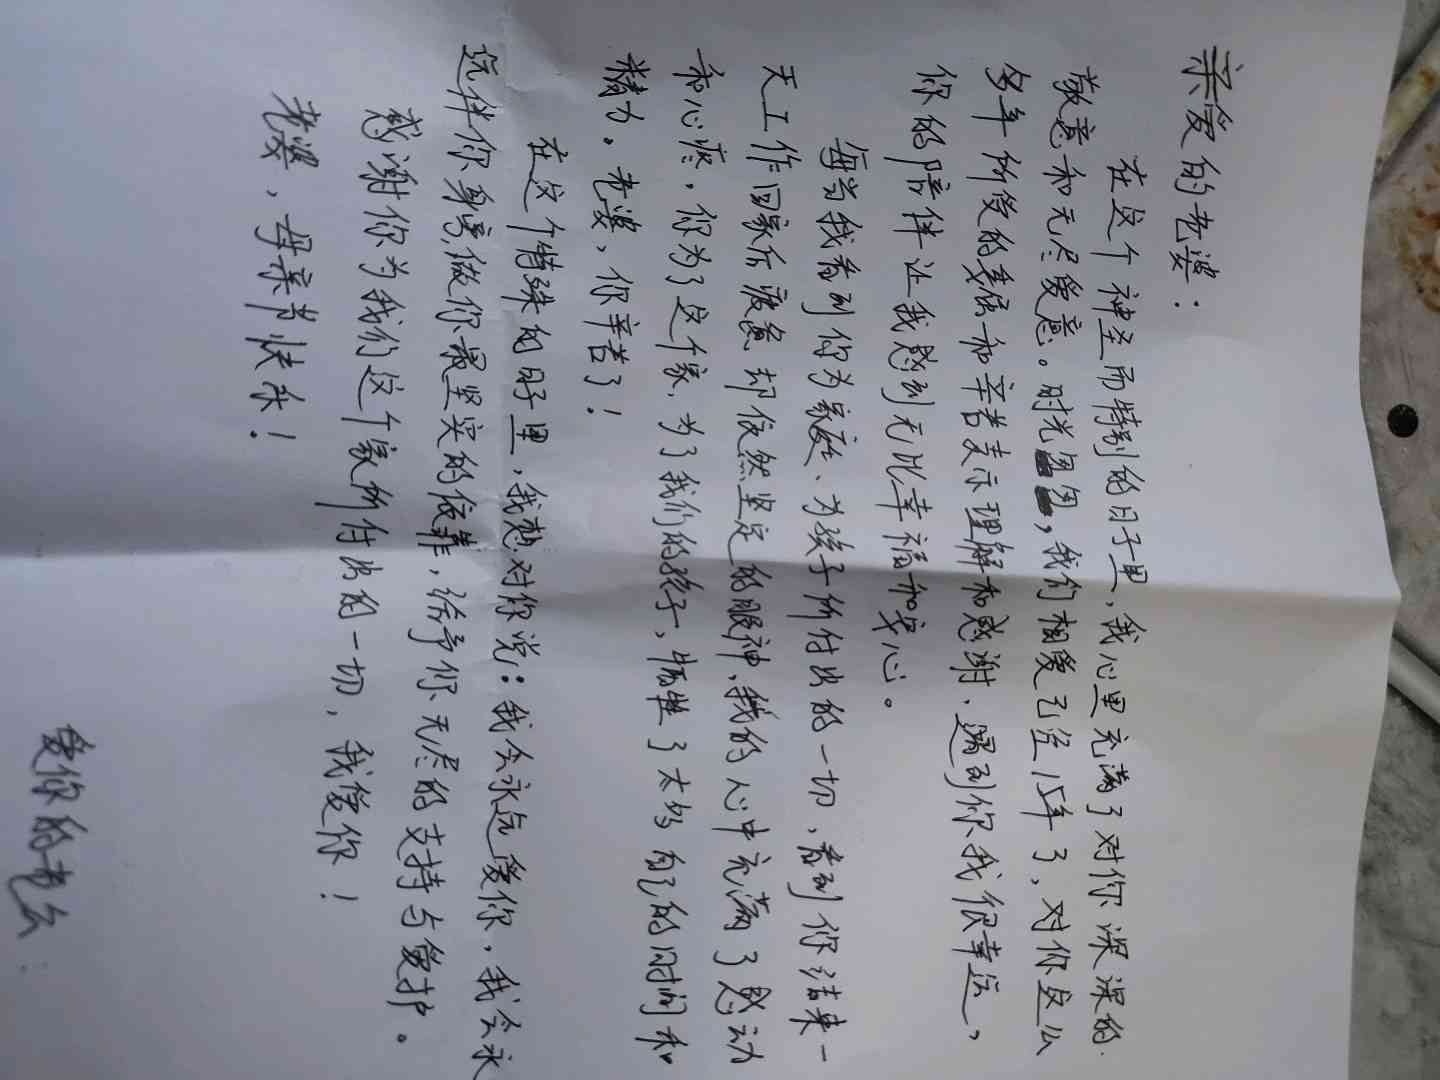 亲爱的老婆：
在这个神圣而特别的日子里，我心里充满了对你深深的
敬意和无尽爱意。时光匆匆，我们相爱已经15年了、对你这么
多年所受的委屈和辛苦表示理解和感谢、遇到你我很幸运，
你的陪伴让我感到无比幸福和安心。
每当我看到你为家庭、为孩子所付出的一切，看到你结束一
天工作回家后疲惫却依然坚定的眼神，我的心中充满了感动
和心疼。你为了这个家，为了我们的孩子，牺牲了太多自己的时间和
精力。老婆，你辛苦了！
在这个特殊的日子里，我想对你说：我会永远爱你，我会永
远伴你身旁，做你最坚实的依靠，给予你无尽的支持与爱护。
感谢你为我们这个家所付出的一切，我爱你！
老婆，母亲节快乐！
爱你的老公